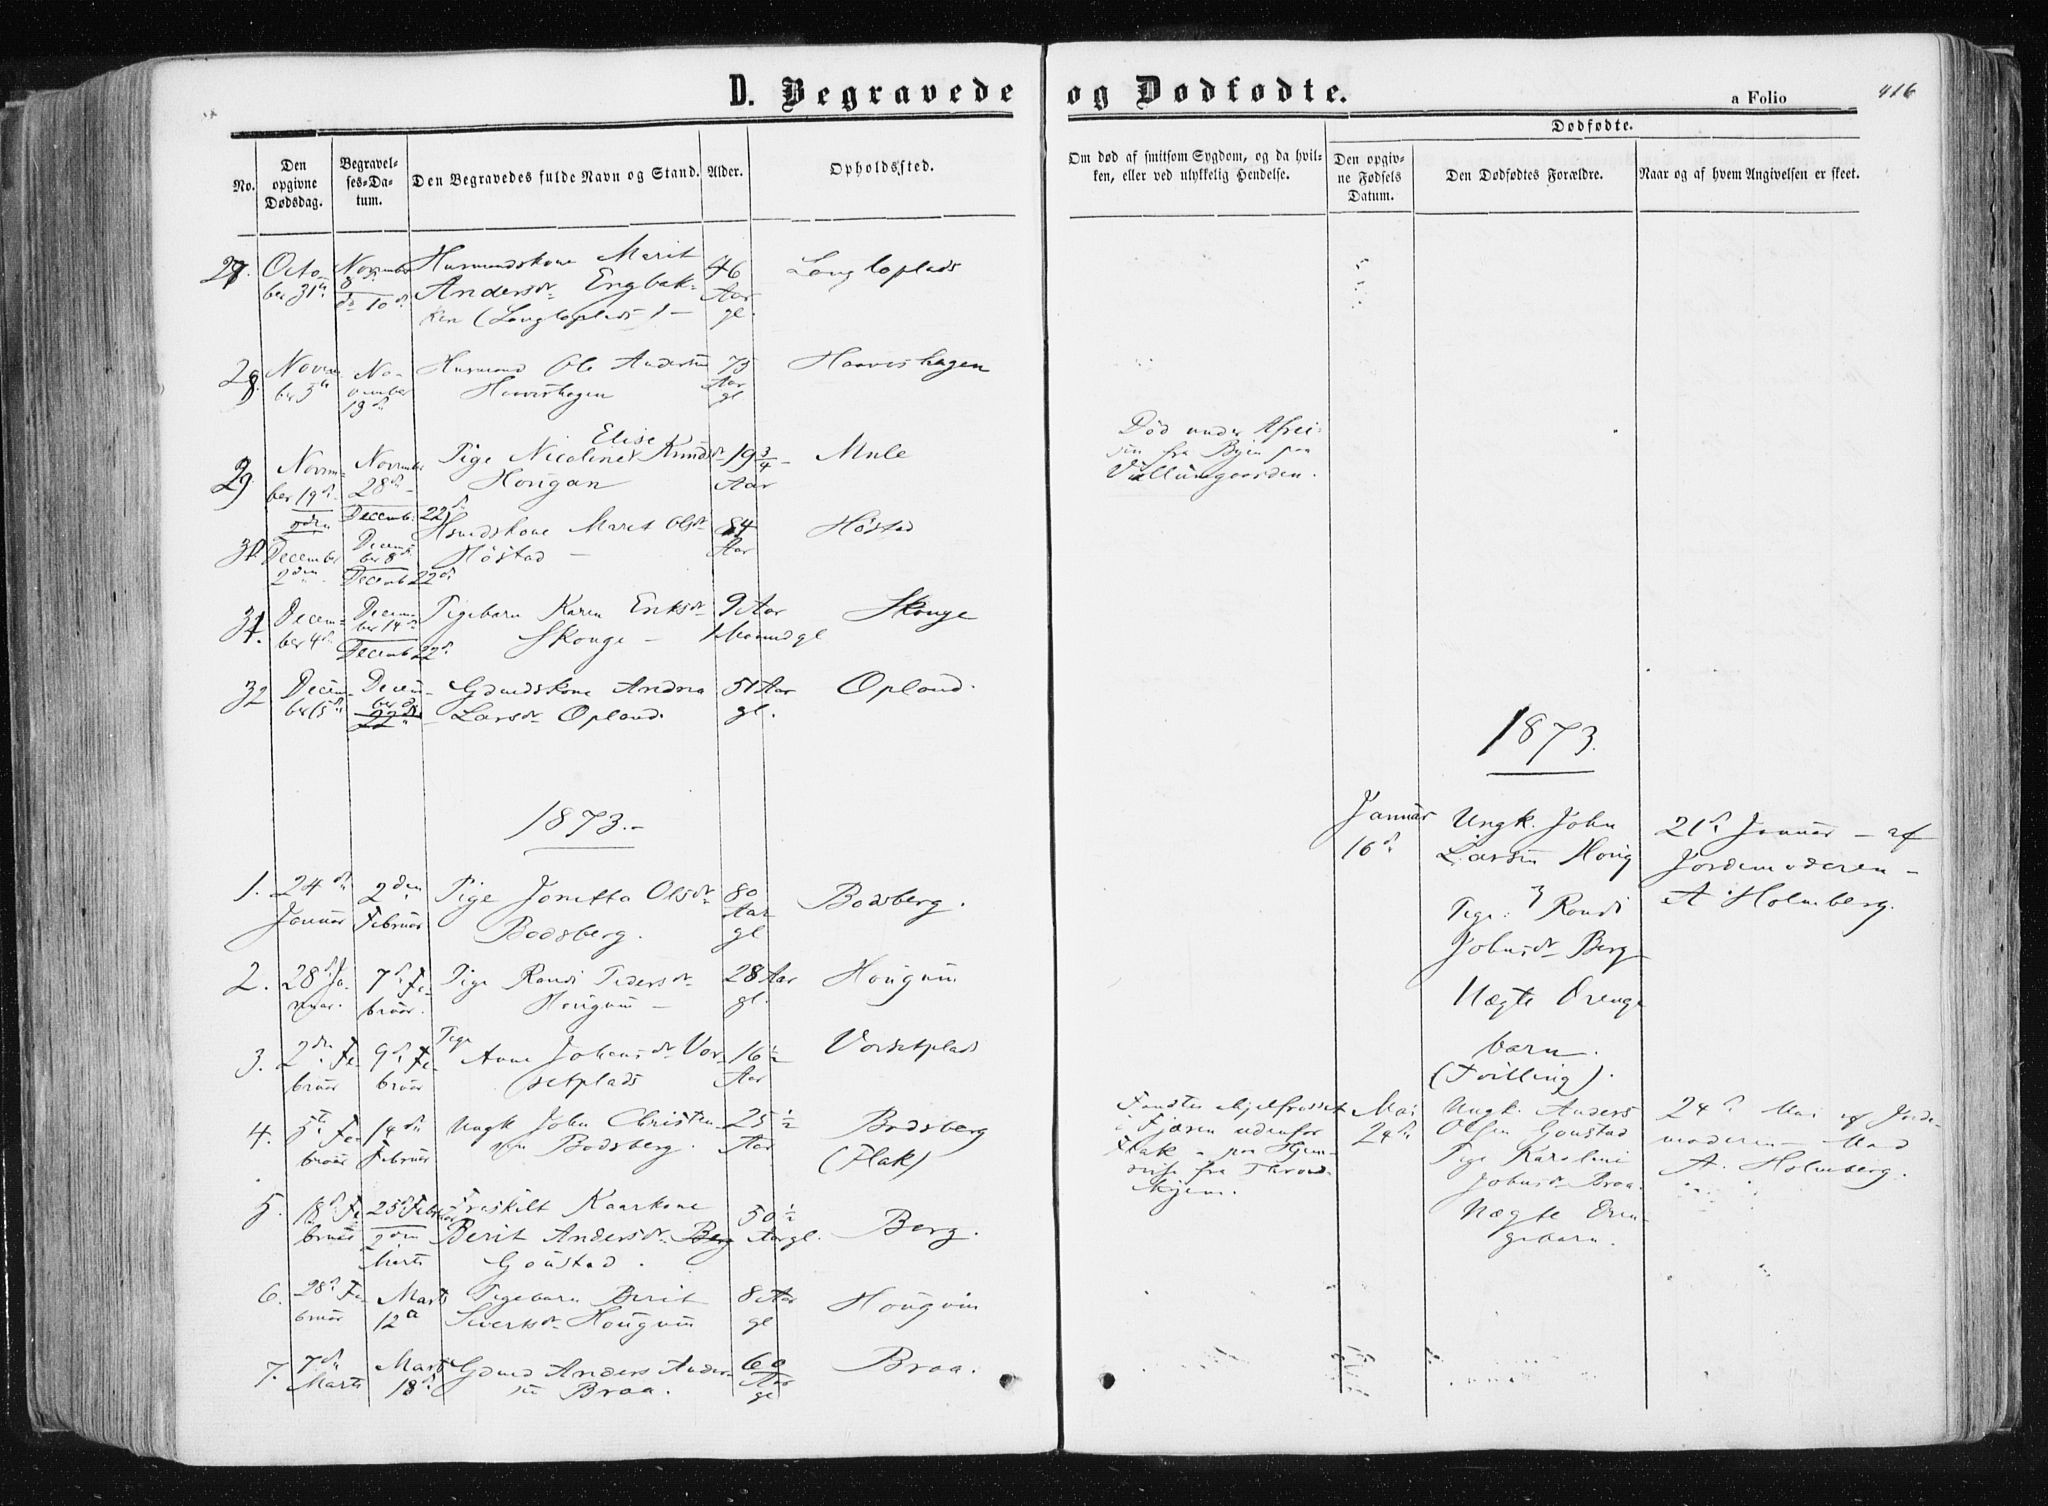 D. Begravede og Dødfødte.
a Folio 416
No.
Den opgivne Dødsdag.
Begravelses-Datum.
Den Begravedes fulde Navn og Stand.
Alder.
Opholdssted.
Om død af smitsom Sygdom, og da hvilken, eller ved ulykkelig Hendelse.
Dødfødte.
Den opgivne Fødsels Datum.
Den Dødfødtes Forældre.
Naar og af hvem Angivelsen er skeet.
27. October 31te November 8de
do 10de Husmandskone Marit
Andersdr Engbakken (Langloplads) 46 Aar gl. Langloplads
28. November 5te November 13de Husmand Ole Andersen
Haarishagen 75 Aar gl Haarishagen
29. November 19de November 28de
Decemb. 22de Pige Nicoline Elise Knudsdr
Hougan 19 3/4 Aar Mule
Død under Afrei-
sen fra Byen paa
Vullumgaarden.
30. December 2den December 8de
Decemb 22de Kone Marit Olsdr
Høstad 84 Aar Høstad
31. December 4de December 14de
Decemb 22de Pigebarn Karen Eriksdr
Skouge 9 Aar 1 Maaned gl Skouge
32 December 15de December 22de Gdmdskone
Larsdr Opland. 51 Aar gl. Opland.
1873.
1. 24de Januar 2den Februar Pige Jonetta Olsdr
Bodsberg. 80 Aar gl Bodsberg.
2. 28de Januar. 7de Februar. Pige Randi Pedersdr
Hougum 28 Aar gl. Hougum
3. 2den Februar 9de Februar Pige Anne Johansdr Vor-
setplads 16 1/2 Aar Vorsetplads
4. 5te Februar 14de Februar Ungk John Christen-
sen Bodsberg. 25 1/2 Aar Bodsberg
(Flak)
5. 18de Februar 25de Februar
2den Marts Fraskilt Kaarkone
Berit Andersdr Berg
Goustad. 50 1/2 Aar gl. Berg.
6. 28de Februar Marts 12te Pigebarn Berit
Siversdr Hougum 8 Aar gl Hougum
7. 7de Marts Marts 18de Gdmd Anders Ander-
sen Braa. 60 Aar gl Braa.
1873.
Januar 16de Ungk. John
Larsen Houg
Pige: Randi
Johnsdr Berg
Uægte Drenge
barn.
(Tvilling).
21de Januar – af
Jordemoderen –
A Holmberg.
Fandtes ihjelfrosset
i Fjæren udenfor
Flak – paa Hjem-
reise fra Thrond-
hjem.
Mai 24de Ungk. Anders
Olsen Goustad
Pige Karoline
Johnsdr Braa.
Uægte Dren-
gebarn.
24de Mai af Jorde-
moderen
A. Holmberg.